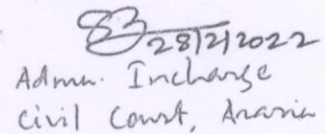 28/2/2022
Admn. Incharge
Civil Court, Araria